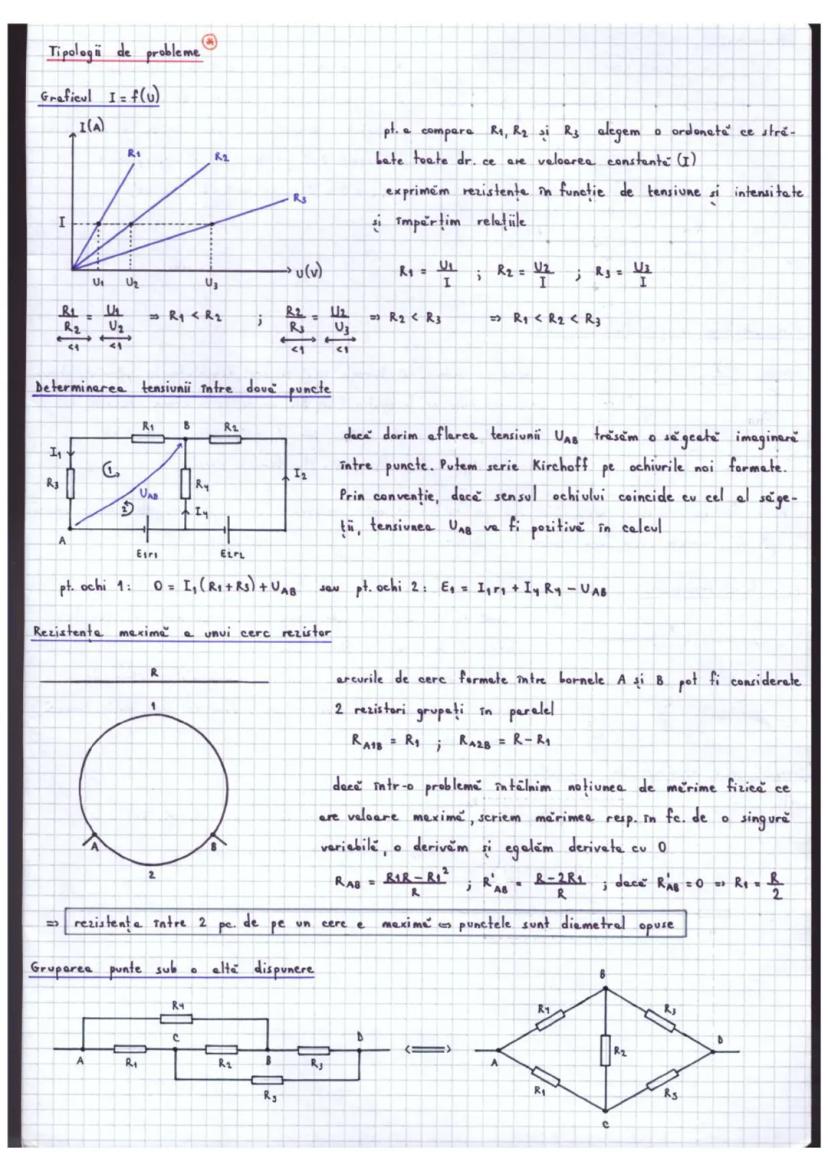 Tipologii de probleme *
Graficul I = f(U)
I(A)
R1
R2
R3
I
U1 U2 U3
U(V)
pt. a compara R1, R2 și R3 alegem o ordonată ce stră-
bate toate dr. ce are valoarea constantă (I)
exprimăm rezistența în funcție de tensiune și intensitate
și împărțim relațiile
R1 = U1/I ; R2 = U2/I ; R3 = U3/I
R1/R2 = U1/U2 ⇒ R1 < R2 ; R2/R3 = U2/U3 ⇒ R2 < R3 ⇒ R1 < R2 < R3
<1 <1 <1 <1
Determinarea tensiunii între două puncte
R1 B R2
I1
1
R3
UAB
R4
I2
2
I4
A
E1r1 E2r2
dacă dorim aflarea tensiunii UAB trăsăm o săgeată imaginară
între puncte. Putem scrie Kirchoff pe ochiurile noi formate.
Prin convenție, dacă sensul ochiului coincide cu cel al săge-
ții, tensiunea UAB va fi pozitivă în calcul
pt. ochi 1: 0 = I1(R1+R3) + UAB sau pt. ochi 2: E1 = I1r1 + I4R4 - UAB
Rezistența maximă a unui cerc rezistor
R
1
A
B
2
arcurile de cerc formate între bornele A și B pot fi considerate
2 rezistori grupați în paralel
RA1B = R1 ; RA2B = R-R1
dacă într-o problemă întâlnim noțiunea de mărime fizică ce
are valoare maximă, scriem mărimea resp. în fc. de o singură
variabilă, o derivăm și egalăm derivata cu 0
RAB = R1R-R1²/R ; R'AB = R-2R1/R ; dacă R'AB = 0 ⇒ R1 = R/2
⇒ rezistența între 2 pc. de pe un cerc e maximă ⇔ punctele sunt diametral opuse
Gruparea punte sub o altă dispunere
R4
A R1 C R2 B R3 D
R5
⇔
B
R4 R3
A R2 D
R1 R5
C